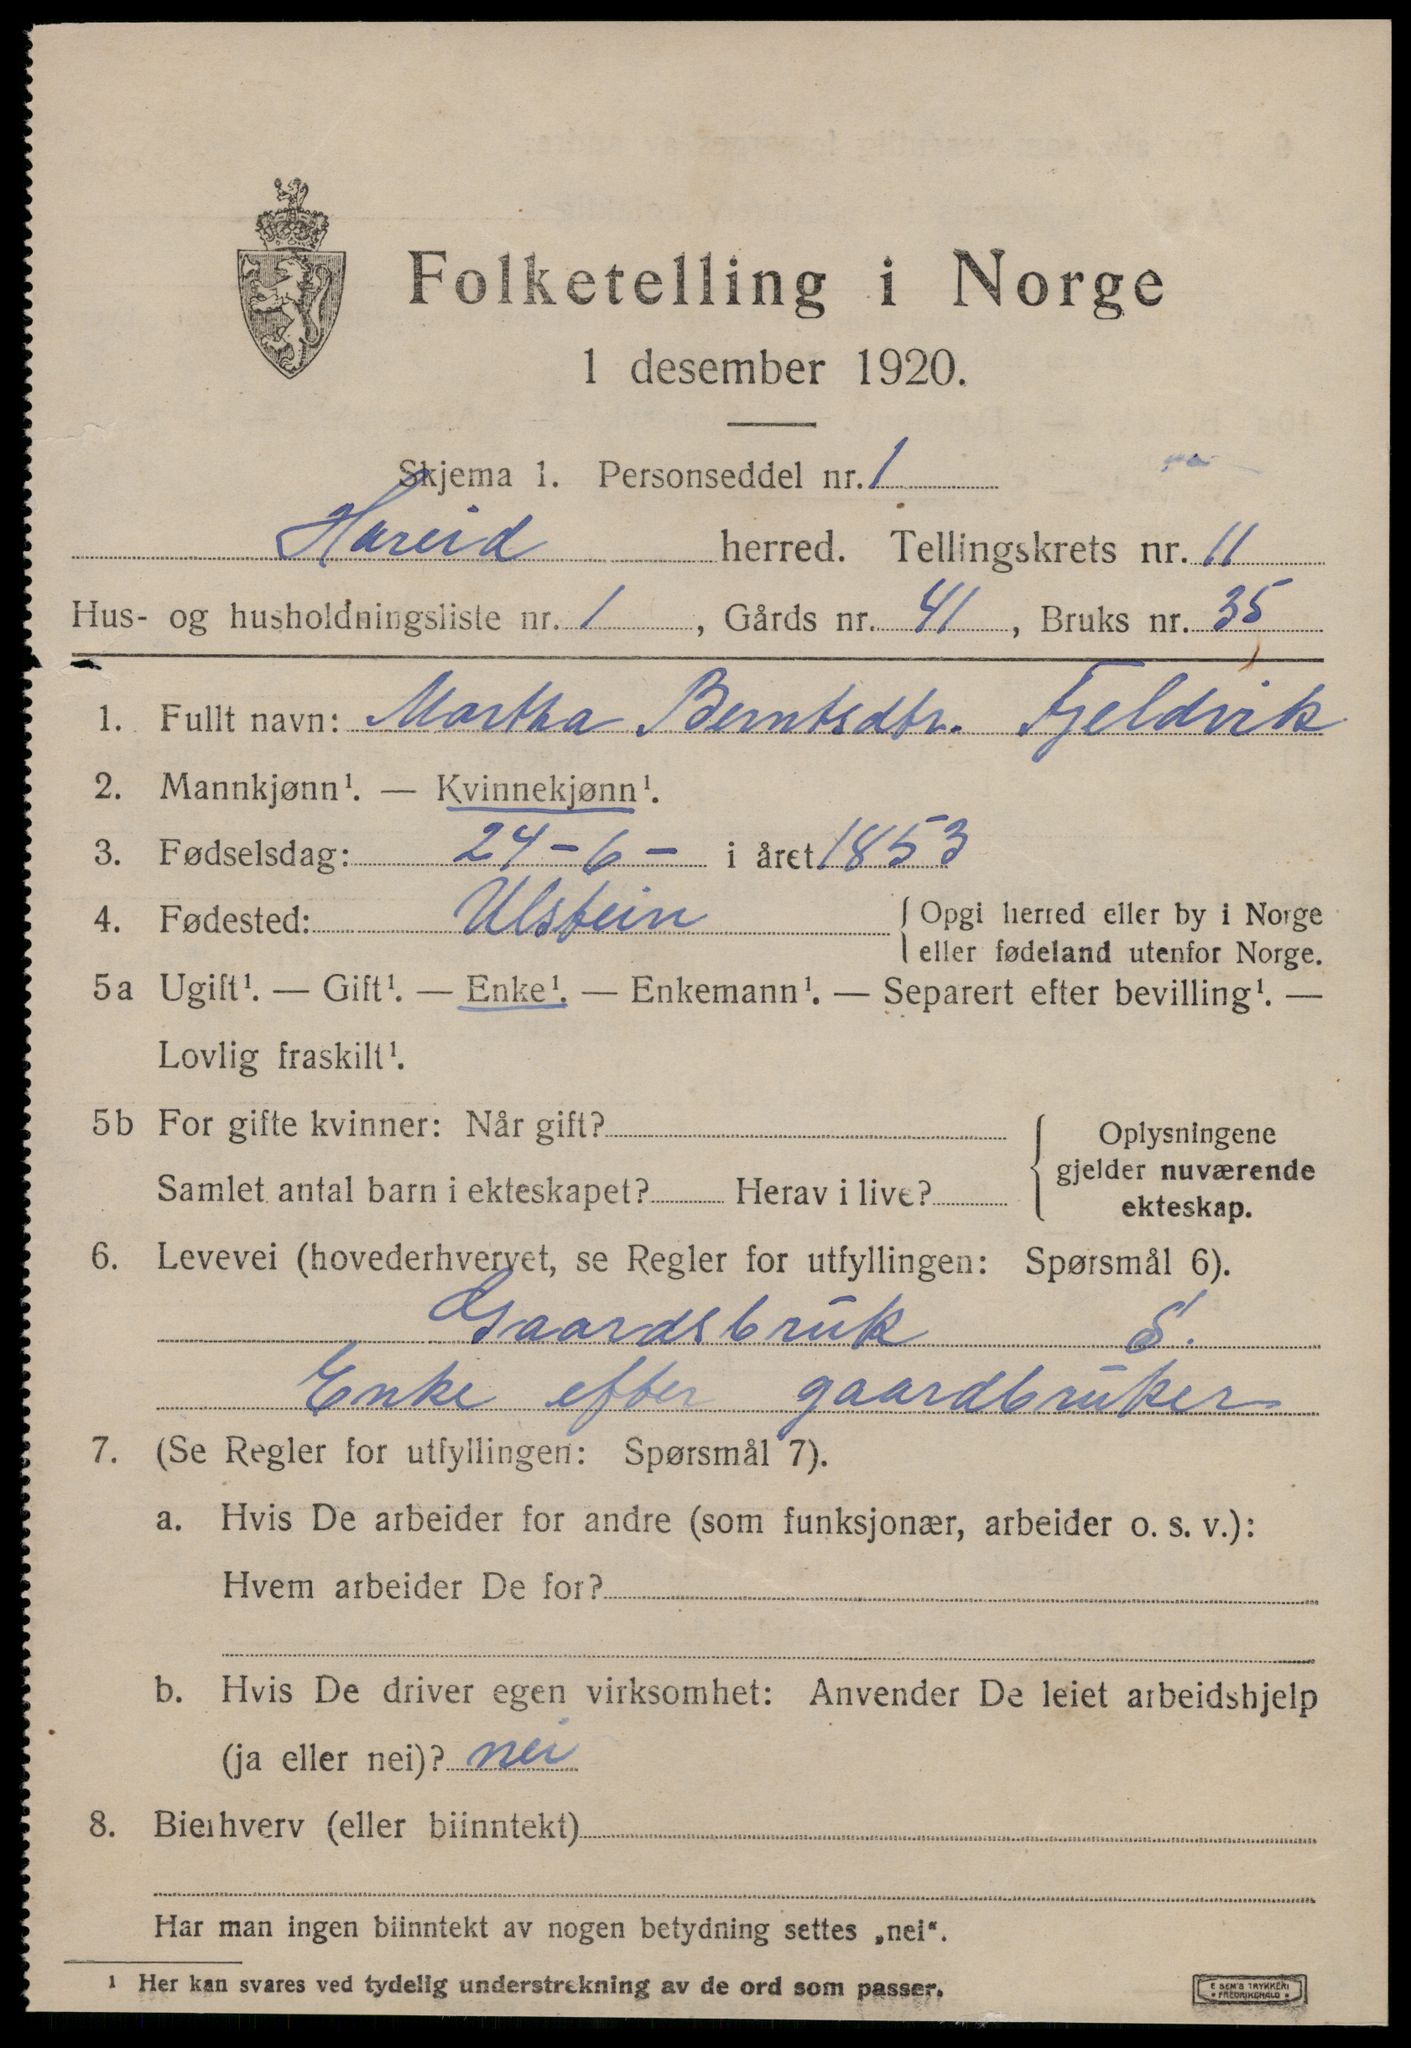 Folketelling i Norge
1 desember 1920.
Skjema 1. Personseddel nr. 1
Hareid herred. Tellingskrets nr. 11
Hus- og husholdningsliste nr. 1, Gårds nr. 41, Bruks nr. 35
1. Fullt navn: Martha Berntsdtr. Fjeldvik
2. Mannkjønn¹. — Kvinnekjønn¹.
3. Fødselsdag: 24-6- i året 1853
4. Fødested: Ulstein { Opgi herred eller by i Norge
eller fødeland utenfor Norge.
5a Ugift¹. — Gift¹. — Enke¹. — Enkemann¹. — Separert efter bevilling¹. —
Lovlig fraskilt¹.
5b For gifte kvinner: Når gift?
Samlet antal barn i ekteskapet? Herav i live?
{ Oplysningene
gjelder nuværende
ekteskap.
6. Levevei (hovederhvervet, se Regler for utfyllingen: Spørsmål 6).
Gaardsbruk S.
Enke efter gaardbruker
7. (Se Regler for utfyllingen: Spørsmål 7).
a. Hvis De arbeider for andre (som funksjonær, arbeider o. s. v.):
Hvem arbeider De for?
b. Hvis De driver egen virksomhet: Anvender De leiet arbeidshjelp
(ja eller nei)? nei
8. Bierhverv (eller biinntekt)
Har man ingen biinntekt av nogen betydning settes „nei“.
¹ Her kan svares ved tydelig understrekning av de ord som passer.
E SEM'S TRYKKERI
FREDRIKSHALD